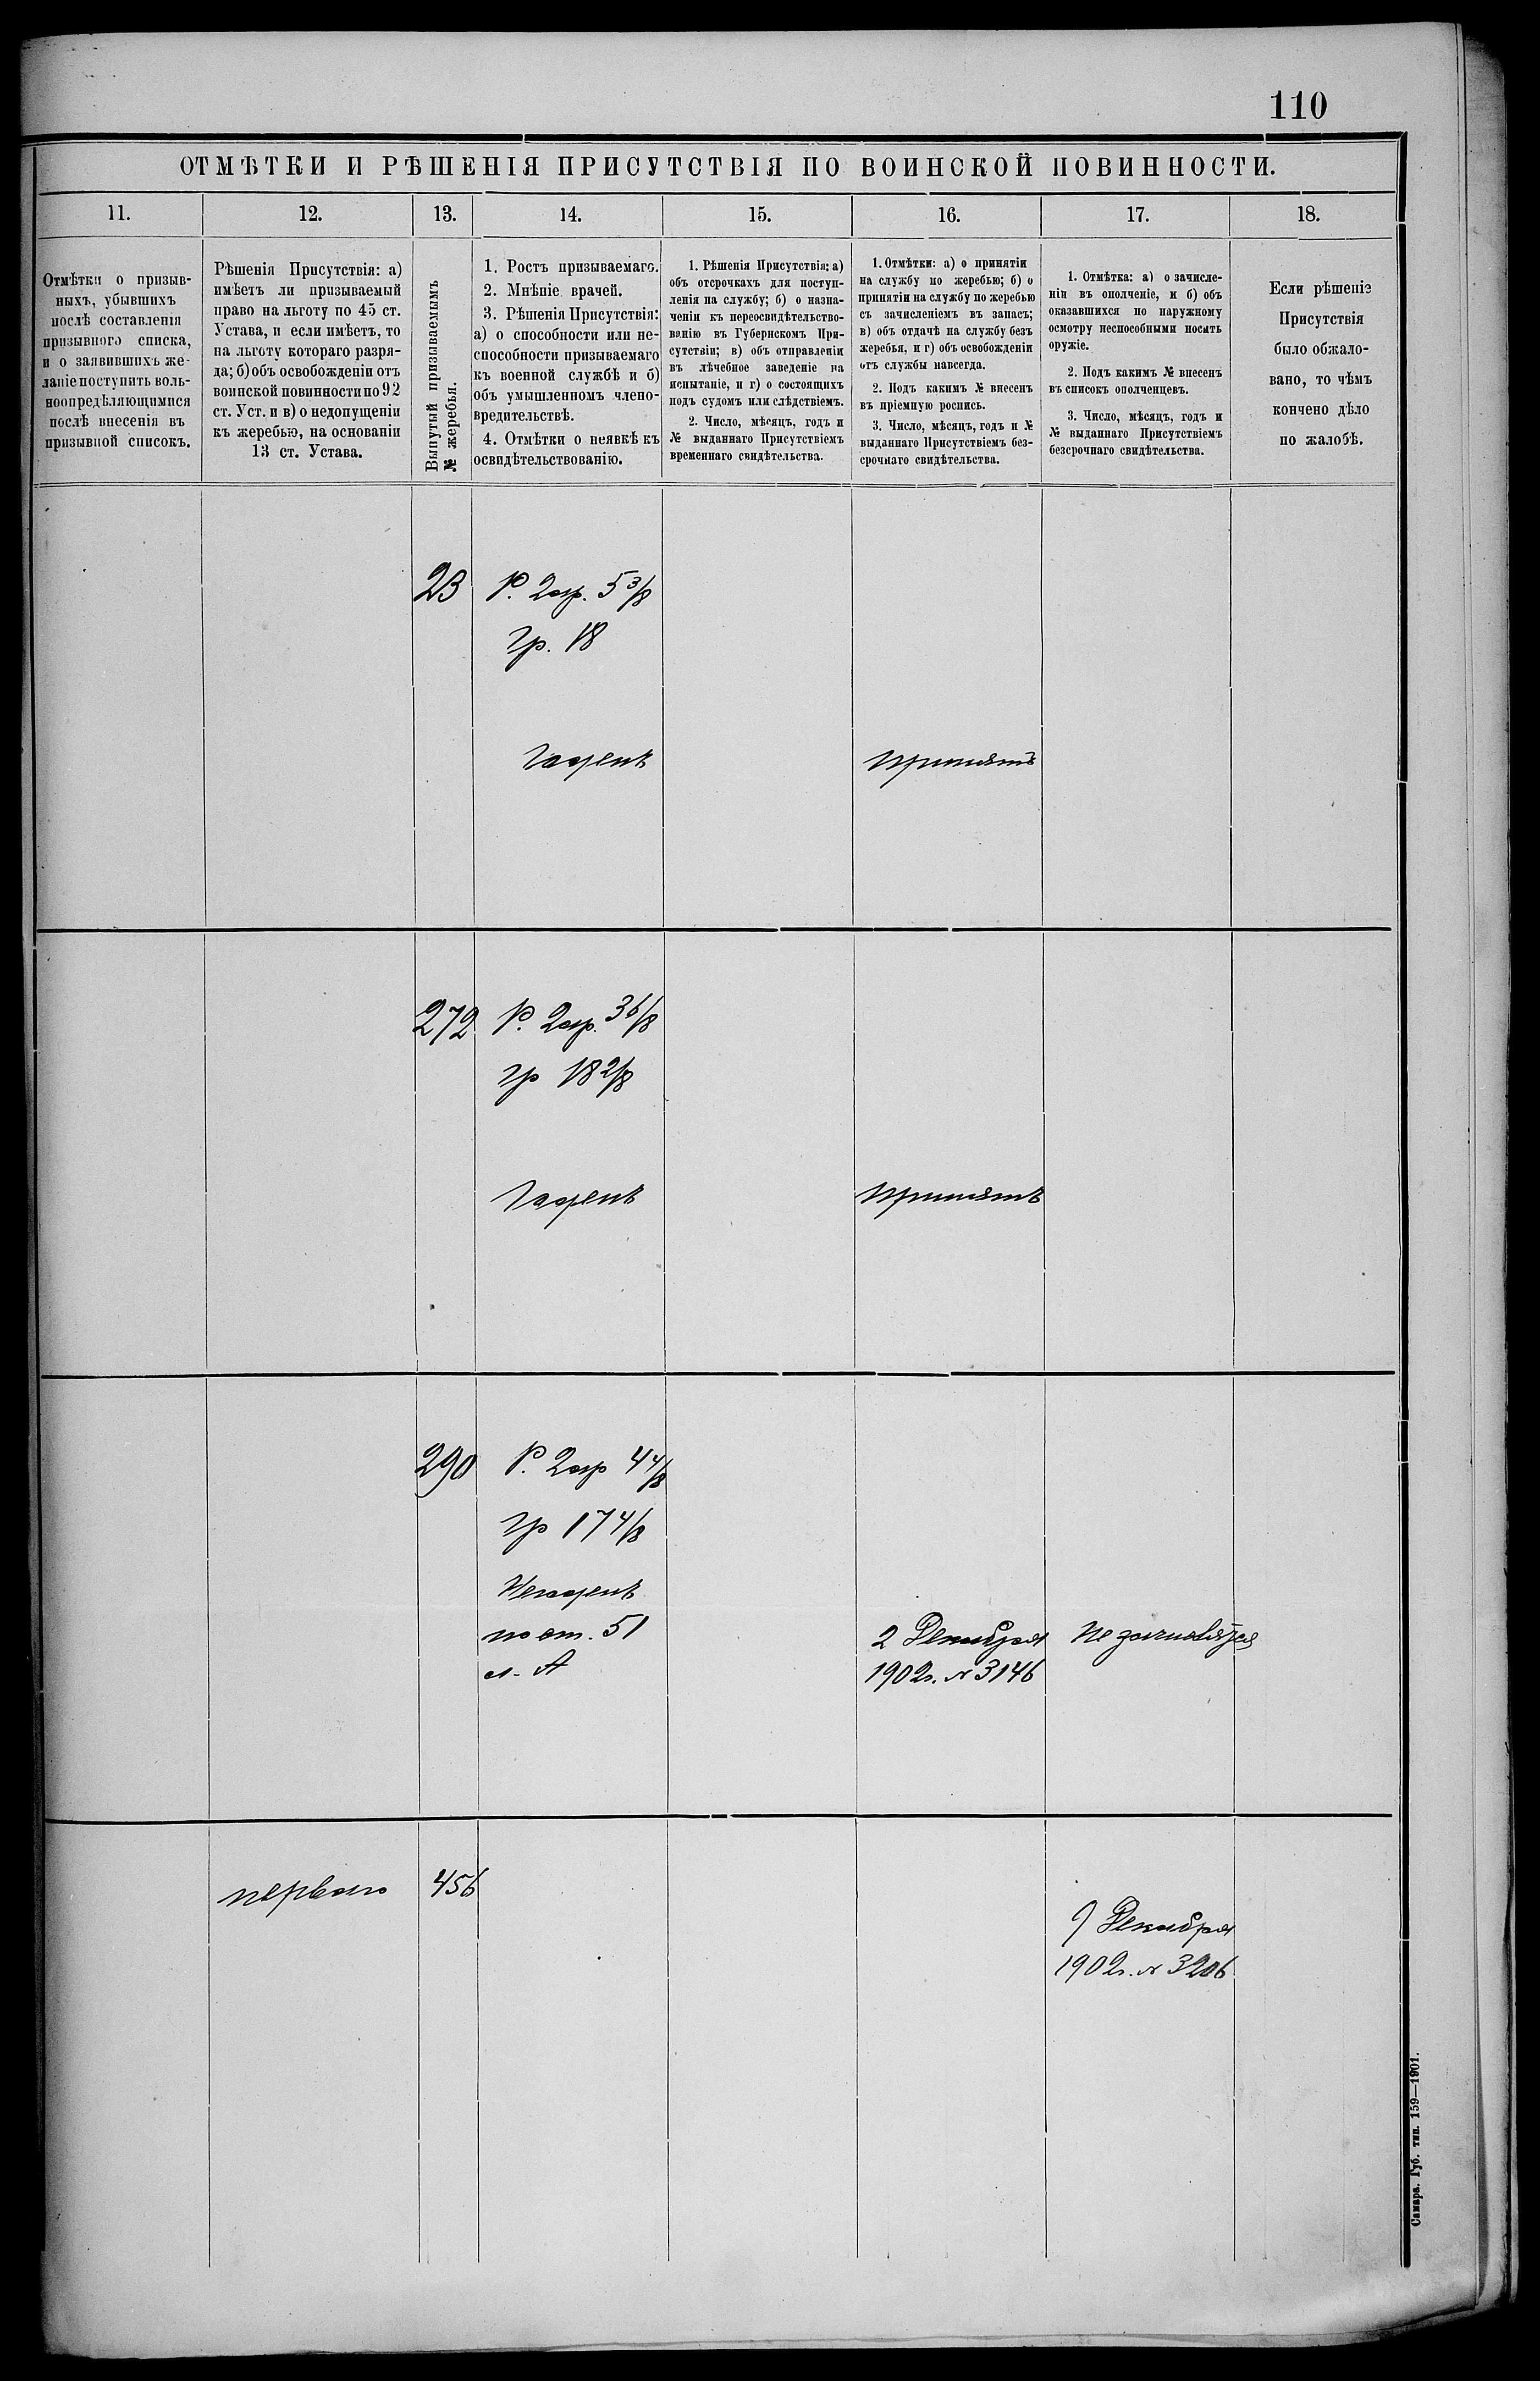 110
ОТМѢТКИ И РѢШЕНІЯ ПРИСУТСТВІЯ ПО ВОИНСКОЙ ПОВИННОСТИ.
11.
12.
13.
14.
15.
16.
17.
18.
Отмѣтки о призыв-
ныхъ, убывшихъ
послѣ составленія
призывного списка,
и о заявившихъ же-
ланіе поступить воль-
ноопредѣляющимися
послѣ внесенія въ
призывной списокъ.
Рѣшенія Присутствія: а)
имѣетъ ли призываемый
право на льготу по 45 ст.
Устава, и если имѣетъ, то
на льготу котораго разря-
да; б) объ освобожденіи отъ
воинской повинности по 92
ст. Уст. и в) о недопущеніи
къ жеребью, на основаніи
13 ст. Устава.
Вынутый призываемымъ
№ жеребья.
1. Ростъ призываемаго.
2. Мнѣніе врачей.
3. Рѣшенія Присутствія:
а) о способности или не-
способности призываемаго
къ военной службѣ и б)
объ умышленномъ члено-
вредительствѣ.
4. Отмѣтки о неявкѣ къ
освидѣтельствованію.
1. Рѣшенія Присутствія: а)
объ отсрочкахъ для поступ-
ленія на службу; б) о назна-
ченіи къ переосвидѣтельство-
ванію въ Губернскомъ При-
сутствіи; в) объ отправленіи
въ лѣчебное заведеніе на
испытаніе, и г) о состоящихъ
подъ судомъ или слѣдствіемъ.
2. Число, мѣсяцъ, годъ и
№ выданнаго Присутствіемъ
временнаго свидѣтельства.
1. Отмѣтки: а) о принятіи
на службу по жеребью; б) о
принятіи на службу по жеребью
съ зачисленіемъ въ запасъ;
в) объ отдачѣ на службу безъ
жеребья, и г) объ освобожденіи
отъ службы навсегда.
2. Подъ какимъ № внесенъ
въ пріемную роспись.
3. Число, мѣсяцъ, годъ и №
выданнаго Присутствіемъ без-
срочнаго свидѣтельства.
1. Отмѣтка: а) о зачисле-
ніи въ ополченіе, и б) объ
оказавшихся по наружному
осмотру неспособными носить
оружіе.
2. Подъ какимъ № внесенъ
въ списокъ ополченцевъ.
3. Число, мѣсяцъ, годъ и
№ выданнаго Присутствіемъ
безсрочнаго свидѣтельства.
Если рѣшеніе
Присутствія
было обжало-
вано, то чѣмъ
кончено дѣло
по жалобѣ.
23
Р. 2 ар. 5 3/8
гр. 18
Годенъ
Принятъ
272
Р. 2 ар. 3 6/8
гр 18 2/8
Годенъ
Принятъ
290
Р. 2 ар 4 4/8
гр 17 4/8
Негоденъ
по ст. 51
л. А
2 Декабря
1902 г. № 3146
Не зачисляется
перваго
456
9 Декабря
1902 г. № 3206
Самара. Губ. тип. 159—1901.